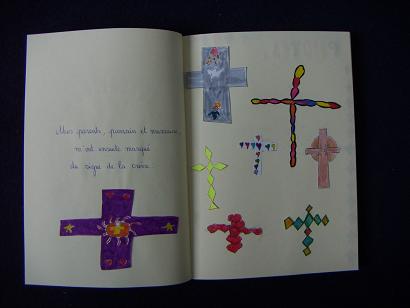 Mes parents, parrain et marraine,
m'ont ensuite marqué
du signe de la croix.